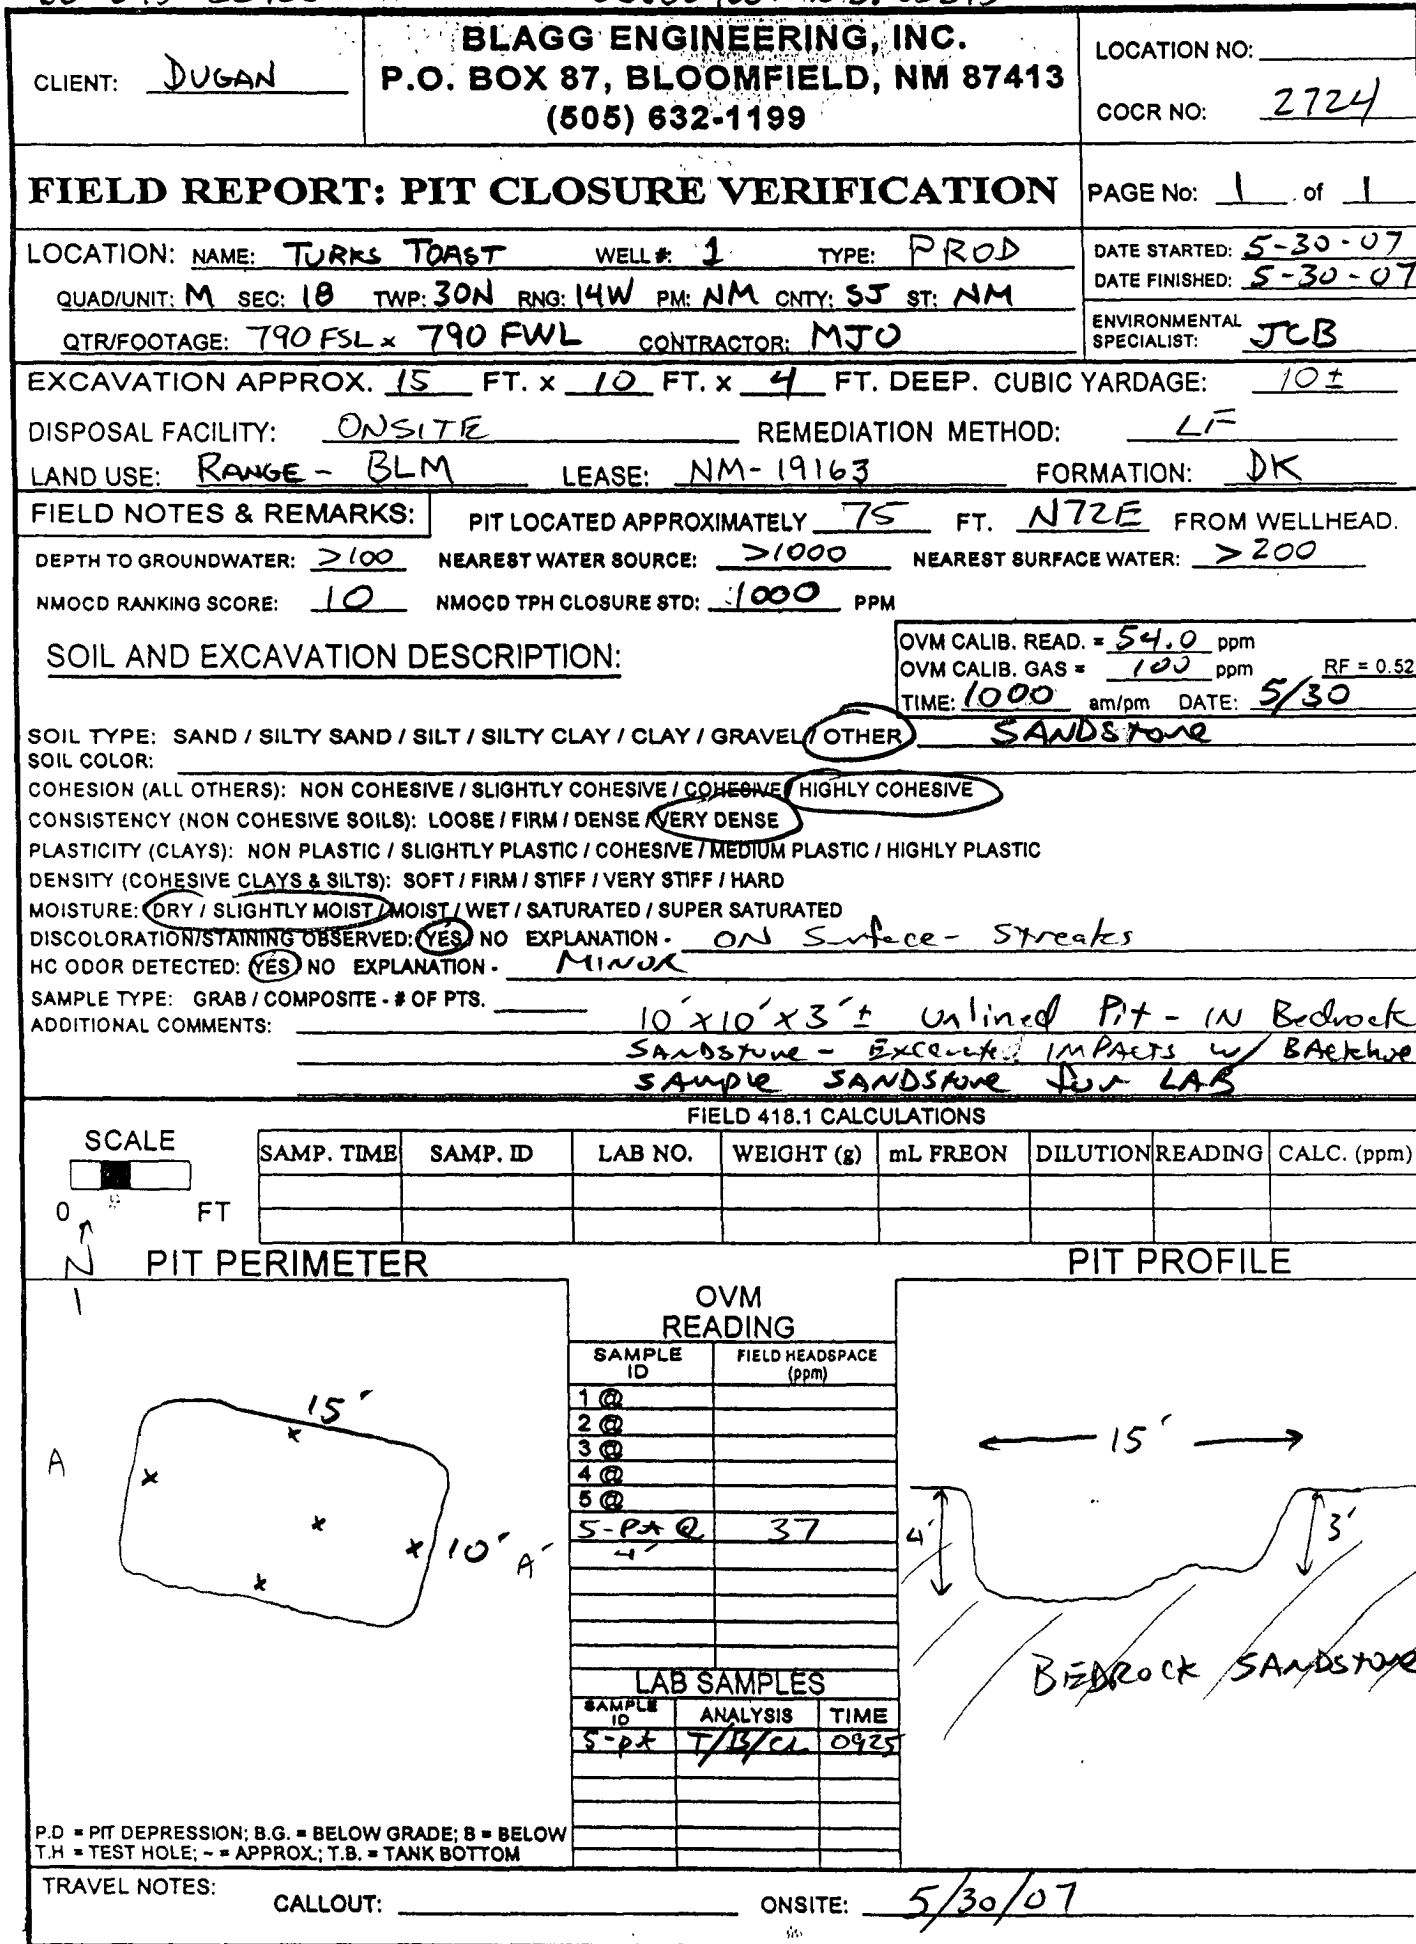 BLAGG ENGINEERING, INC.
P.O. BOX 87, BLOOMFIELD, NM 87413
(505) 632-1199
CLIENT: DUGAN
LOCATION NO:
COCR NO: 2724
FIELD REPORT: PIT CLOSURE VERIFICATION
PAGE No: 1 of 1
LOCATION: NAME: TURKS TOAST WELL #: 1 TYPE: PROD
DATE STARTED: 5-30-07
DATE FINISHED: 5-30-07
QUAD/UNIT: M SEC: 18 TWP: 30N RNG: 14W PM: NM CNTY: SJ ST: NM
QTR/FOOTAGE: 790 FSL x 790 FWL CONTRACTOR: MJO
ENVIRONMENTAL
SPECIALIST: JCB
EXCAVATION APPROX. 15 FT. x 10 FT. x 4 FT. DEEP. CUBIC YARDAGE: 10 ±
DISPOSAL FACILITY: ONSITE REMEDIATION METHOD: LF
LAND USE: RANGE - BLM LEASE: NM-19163 FORMATION: DK
FIELD NOTES & REMARKS: PIT LOCATED APPROXIMATELY 75 FT. N72E FROM WELLHEAD.
DEPTH TO GROUNDWATER: >100 NEAREST WATER SOURCE: >1000 NEAREST SURFACE WATER: >200
NMOCD RANKING SCORE: 10 NMOCD TPH CLOSURE STD: 1000 PPM
SOIL AND EXCAVATION DESCRIPTION:
OVM CALIB. READ. = 54.0 ppm
OVM CALIB. GAS = 100 ppm RF = 0.52
TIME: 1000 am/pm DATE: 5/30
SOIL TYPE: SAND / SILTY SAND / SILT / SILTY CLAY / CLAY / GRAVEL / OTHER SANDSTONE
SOIL COLOR:
COHESION (ALL OTHERS): NON COHESIVE / SLIGHTLY COHESIVE / COHESIVE / HIGHLY COHESIVE
CONSISTENCY (NON COHESIVE SOILS): LOOSE / FIRM / DENSE / VERY DENSE
PLASTICITY (CLAYS): NON PLASTIC / SLIGHTLY PLASTIC / COHESIVE / MEDIUM PLASTIC / HIGHLY PLASTIC
DENSITY (COHESIVE CLAYS & SILTS): SOFT / FIRM / STIFF / VERY STIFF / HARD
MOISTURE: DRY / SLIGHTLY MOIST / MOIST / WET / SATURATED / SUPER SATURATED
DISCOLORATION/STAINING OBSERVED: YES / NO EXPLANATION - ON Surface - Streaks
HC ODOR DETECTED: YES / NO EXPLANATION - MINOR
SAMPLE TYPE: GRAB / COMPOSITE - # OF PTS.
ADDITIONAL COMMENTS: 10' x 10' x 3' ± Unlined Pit - IN Bedrock
SANDSTONE - Excavated IMPACTS w/ BACKhoe
SAMPLE SANDSTONE for LAB
FIELD 418.1 CALCULATIONS
SCALE
0 FT
SAMP. TIME SAMP. ID LAB NO. WEIGHT (g) mL FREON DILUTION READING CALC. (ppm)
N
PIT PERIMETER
PIT PROFILE
OVM
READING
SAMPLE ID FIELD HEADSPACE (ppm)
1 @
2 @
3 @
4 @
5 @
5-Pt @ 37
4'
15'
A
10'
A'
15'
4'
3'
BEDROCK SANDSTONE
LAB SAMPLES
SAMPLE ID ANALYSIS TIME
5-pt T/B/CL 0925
P.D = PIT DEPRESSION; B.G. = BELOW GRADE; B = BELOW
T.H = TEST HOLE; ~ = APPROX.; T.B. = TANK BOTTOM
TRAVEL NOTES:
CALLOUT: ONSITE: 5/30/07